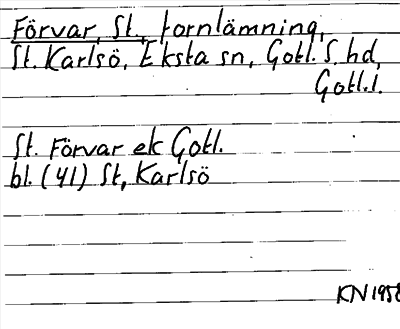 Förvar, St., fornlämning,
St. Karlsö, Eksta sn, Gotl. S. hd,
Gotl.l.
St. Förvar ek Gotl.
bl. (41) St, Karlsö
KN 1958